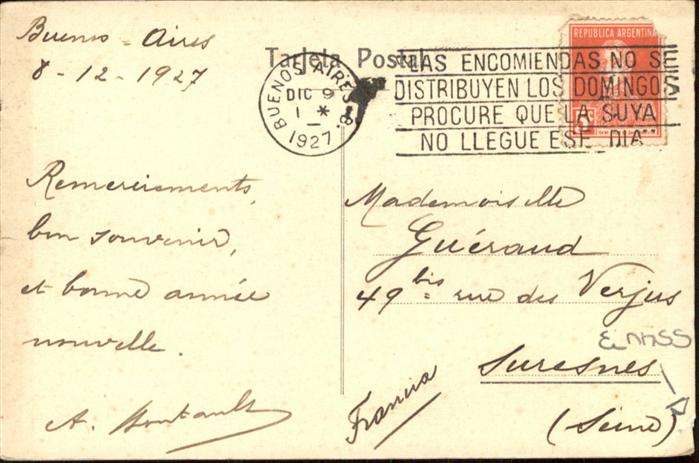 Buenos-Aires
8-12-1927
Tarjeta Postal
BUENOS AIRES
DIC 9
1 *
1927
"LAS ENCOMIENDAS NO SE
DISTRIBUYEN LOS DOMINGOS
PROCURE QUE LA SUYA
NO LLEGUE ESE DIA"
REPUBLICA ARGENTINA
Remerciements,
bon souvenir,
et bonne année
nouvelle.
A.
Mademoiselle
Guéraud
49 bis rue des Verjus
Suresnes
(Seine)
Francia